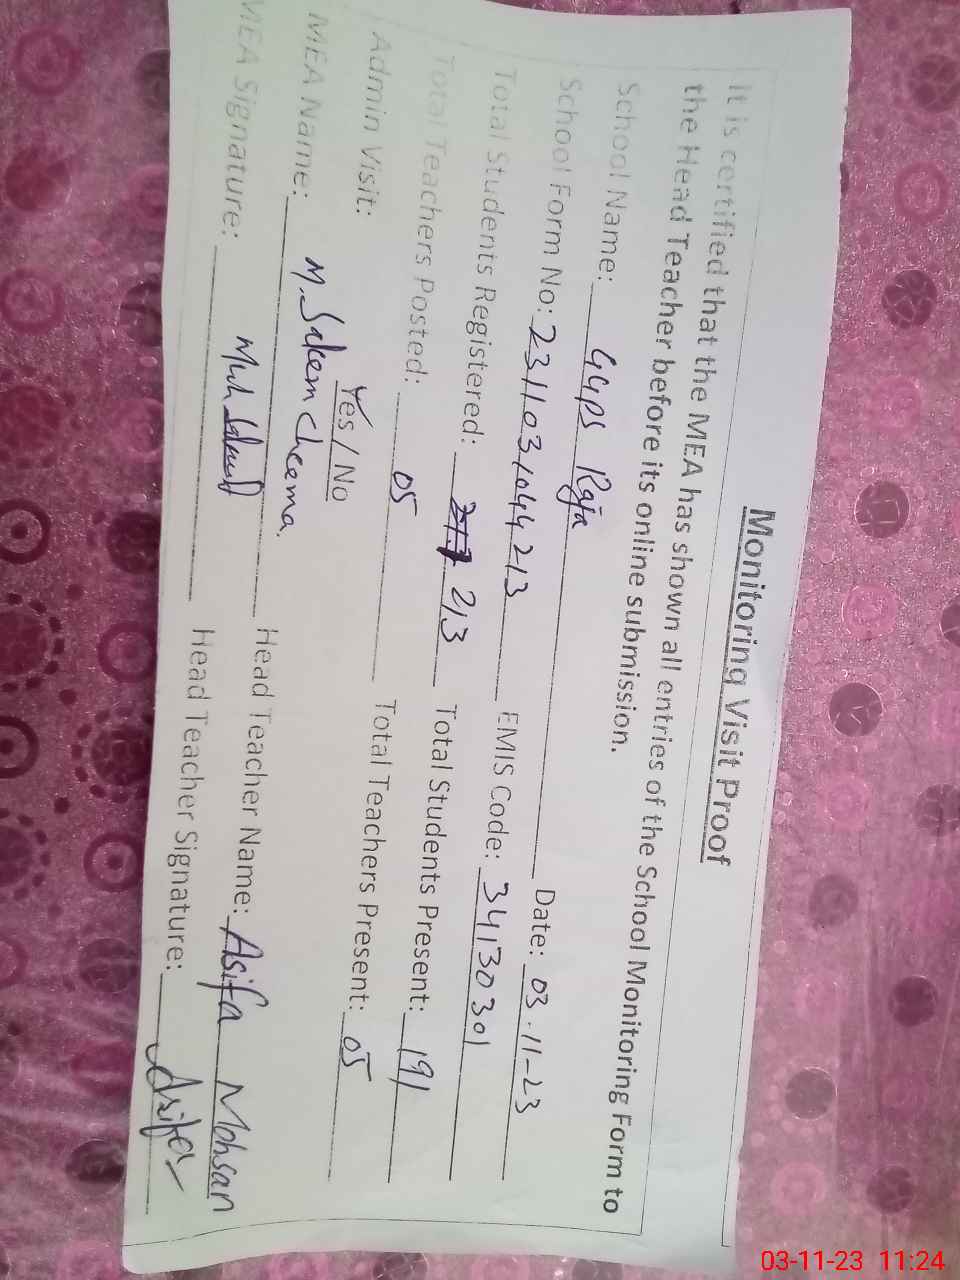 Monitoring Visit Proof
It is certified that the MEA has shown all entries of the School Monitoring Form to
the Head Teacher before its online submission.
School Name: GGPS Raja Date: 03-11-23
School Form No: 2311031044213 EMIS Code: 34130301
Total Students Registered: 217 213 Total Students Present: 191
Total Teachers Posted: 05 Total Teachers Present: 05
Admin Visit: Yes / No
MEA Name: M. Saleem Cheema. Head Teacher Name: Asifa Mohsan
MEA Signature: Head Teacher Signature: Asifa
03-11-23 11:24